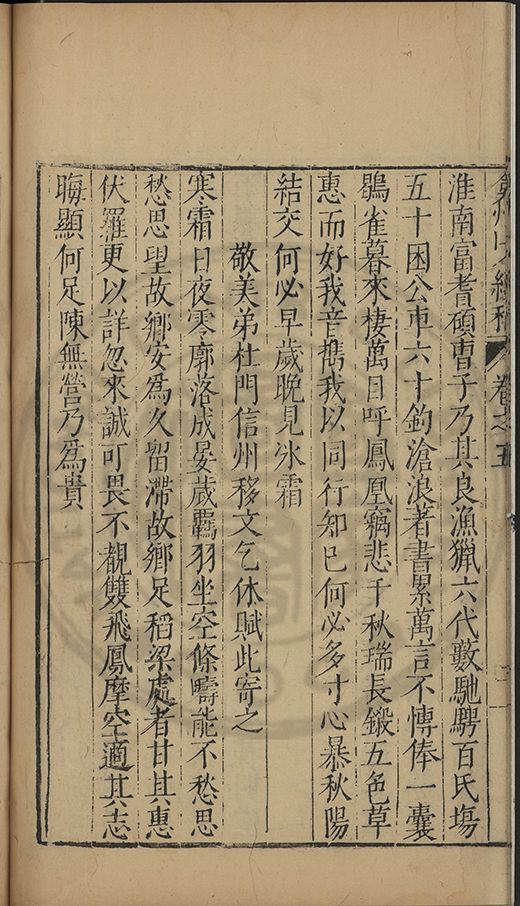 卷之五
淮南富耆碩曹子乃其良漁獵六代藪馳騁百氏塲
五十困公車六十鉤滄浪著書累萬言不慱俸一囊
鶡雀暮來棲萬目呼鳳凰竊悲千秋瑞長鎩五色草
惠而好我音擕我以同行知已何必多寸心暴秋陽
結交何必早歲晚見氷霜
敬美弟杜門信州移文乞休賦此寄之
寒霜日夜零廓落成晏歲覊羽坐空條疇能不愁思
愁思望故鄉安爲久留滯故鄉足稻粱處者甘其惠
伏羅更以詳忽來誠可畏不覩雙飛鳳摩空適其志
晦顯何足陳無營乃爲貴